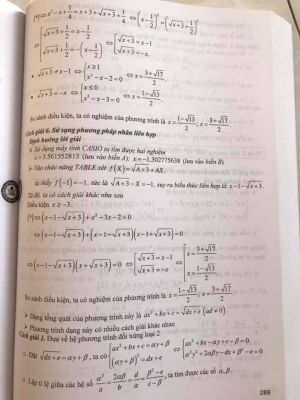 (*) ⇔ x² − x + 1/4 = x + 3 + √(x+3) + 1/4 ⇔ (x − 1/2)² = (√(x+3) + 1/2)²
⇔ [ √(x+3) + 1/2 = x − 1/2 ; √(x+3) + 1/2 = −(x − 1/2) ⇔ [ √(x+3) = x − 1 ; √(x+3) = −x.
• √(x+3) = x − 1 ⇔ { x ≥ 1 ; x² − x − 2 = 0 ⇔ x = (3+√17)/2
• √(x+3) = −x ⇔ { x ≤ 0 ; x² − x − 3 = 0 ⇔ x = (1−√13)/2.
So sánh điều kiện, ta có nghiệm của phương trình là x = (1−√13)/2; x = (3+√17)/2.
Cách giải 6. Sử dụng phương pháp nhân liên hợp
Định hướng lời giải
Sử dụng máy tính CASIO ta tìm được hai nghiệm
x = 3.561552813 (lưu vào biến A); x = −1,302775638 (lưu vào biến B).
Vào chức năng TABLE xét f(X) = √(A+3) + AX.
ta thấy f(−1) = −1, tức là √(A+3) − X = −1, suy ra biểu thức liên hợp là x − 1 − √(x+3).
Từ đó, ta có cách giải khác như sau:
Điều kiện. x ≥ −3.
(*) ⇔ (x − 1 − √(x+3)) + x² − 3x − 2 = 0
⇔ (x − 1 − √(x+3)) + (x − 1 − √(x+3))(x − 1 + √(x+3)) = 0
⇔ (x − 1 − √(x+3))(x + √(x+3)) = 0 ⇔ [ √(x+3) = x − 1 ; √(x+3) = −x ⇔ [ x = (3+√17)/2 ; x = (1−√13)/2.
So sánh điều kiện, ta có nghiệm của phương trình là x = (1−√13)/2; x = (3+√17)/2.
Dạng tổng quát của phương trình này là ax² + bx + c = √(dx + e) (ad ≠ 0).
Phương trình dạng này có nhiều cách giải khác nhau
Cách giải 1. Đưa về hệ phương trình đối xứng loại 2
Đặt √(dx+e) = αy + β, ta có { ax² + bx + c = αy + β ; (αy + β)² = dx + e ⇔ { ax² + bx − αy + c − β = 0 ; α²y² + 2αβy − dx + β² − e = 0
Lập tỉ lệ giữa các hệ số α²/a = 2αβ/b = d/α = (β² − e)/(c − β), ta tìm được các số α, β.
289